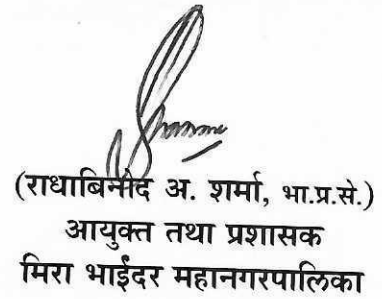 (राधाबिनोद अ. शर्मा, भा.प्र.से.)
आयुक्त तथा प्रशासक
मिरा भाईंदर महानगरपालिका